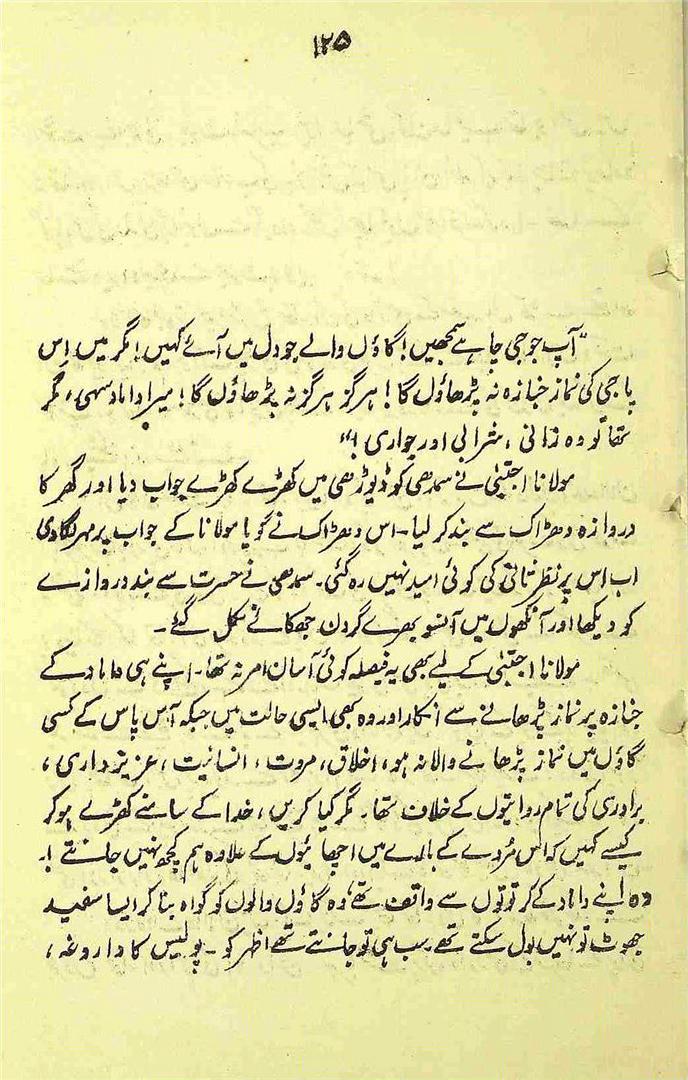 ۱۲۵
"آپ جو جی چاہے سمجھیں! گاؤں والے جو دل میں آئے کہیں! مگر میں اِس
پاجی کی نماز جنازہ نہ پڑھاؤں گا! ہرگز ہرگز نہ پڑھاؤں گا! میرا داماد سہی، مگر
تھا تو وہ زانی، شرابی اور جواری!"
مولانا اجتبیٰ نے سمدھی کو ڈیوڑھی میں کھڑے کھڑے جواب دیا اور گھر کا
دروازہ دھڑاک سے بند کر لیا۔ اس دھڑاک نے گویا مولانا کے جواب پر مہر لگا دی
اب اس پر نظر ثانی کی کوئی امید نہیں رہ گئی۔ سمدھی نے حسرت سے بند دروازے
کو دیکھا اور آنکھوں میں آنسو بھرے گردن جھکائے نکل گئے۔
مولانا اجتبیٰ کے لیے بھی یہ فیصلہ کوئی آسان امر نہ تھا۔ اپنے ہی داماد کے
جنازہ پر نماز پڑھانے سے انکار اور وہ بھی ایسی حالت میں جبکہ آس پاس کے کسی
گاؤں میں نماز پڑھانے والا نہ ہو، اخلاق، مروت، انسانیت، عزیز داری،
برادری کی تمام روایتوں کے خلاف تھا۔ مگر کیا کریں، خدا کے سامنے کھڑے ہو کر
کیسے کہیں کہ اس مُردے کے بارے میں اچھائیوں کے علاوہ ہم کچھ نہیں جانتے!۔
وہ اپنے داماد کے کرتوتوں سے واقف تھے، وہ گاؤں والوں کو گواہ بنا کر ایسا سفید
جھوٹ تو نہیں بول سکتے تھے۔ سب ہی تو جانتے تھے اظہر کو۔ پولیس کا داروغہ،